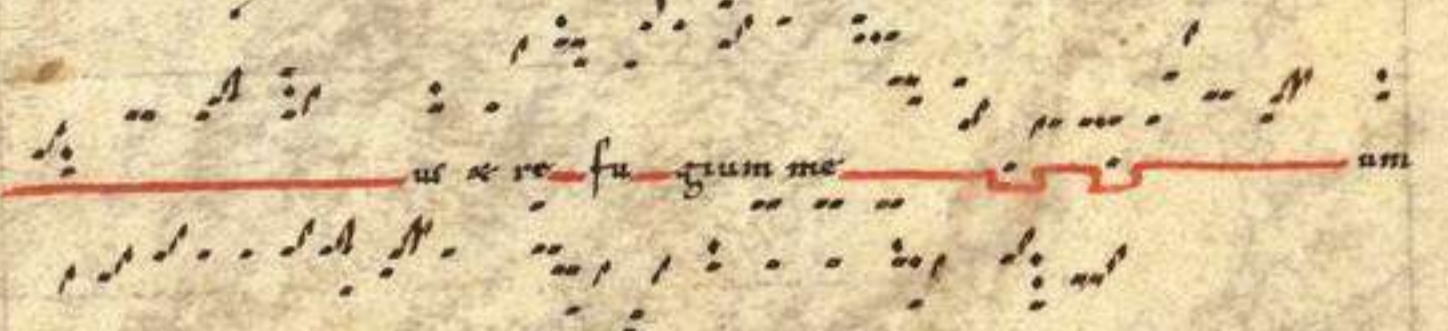 us & re fu gium me um